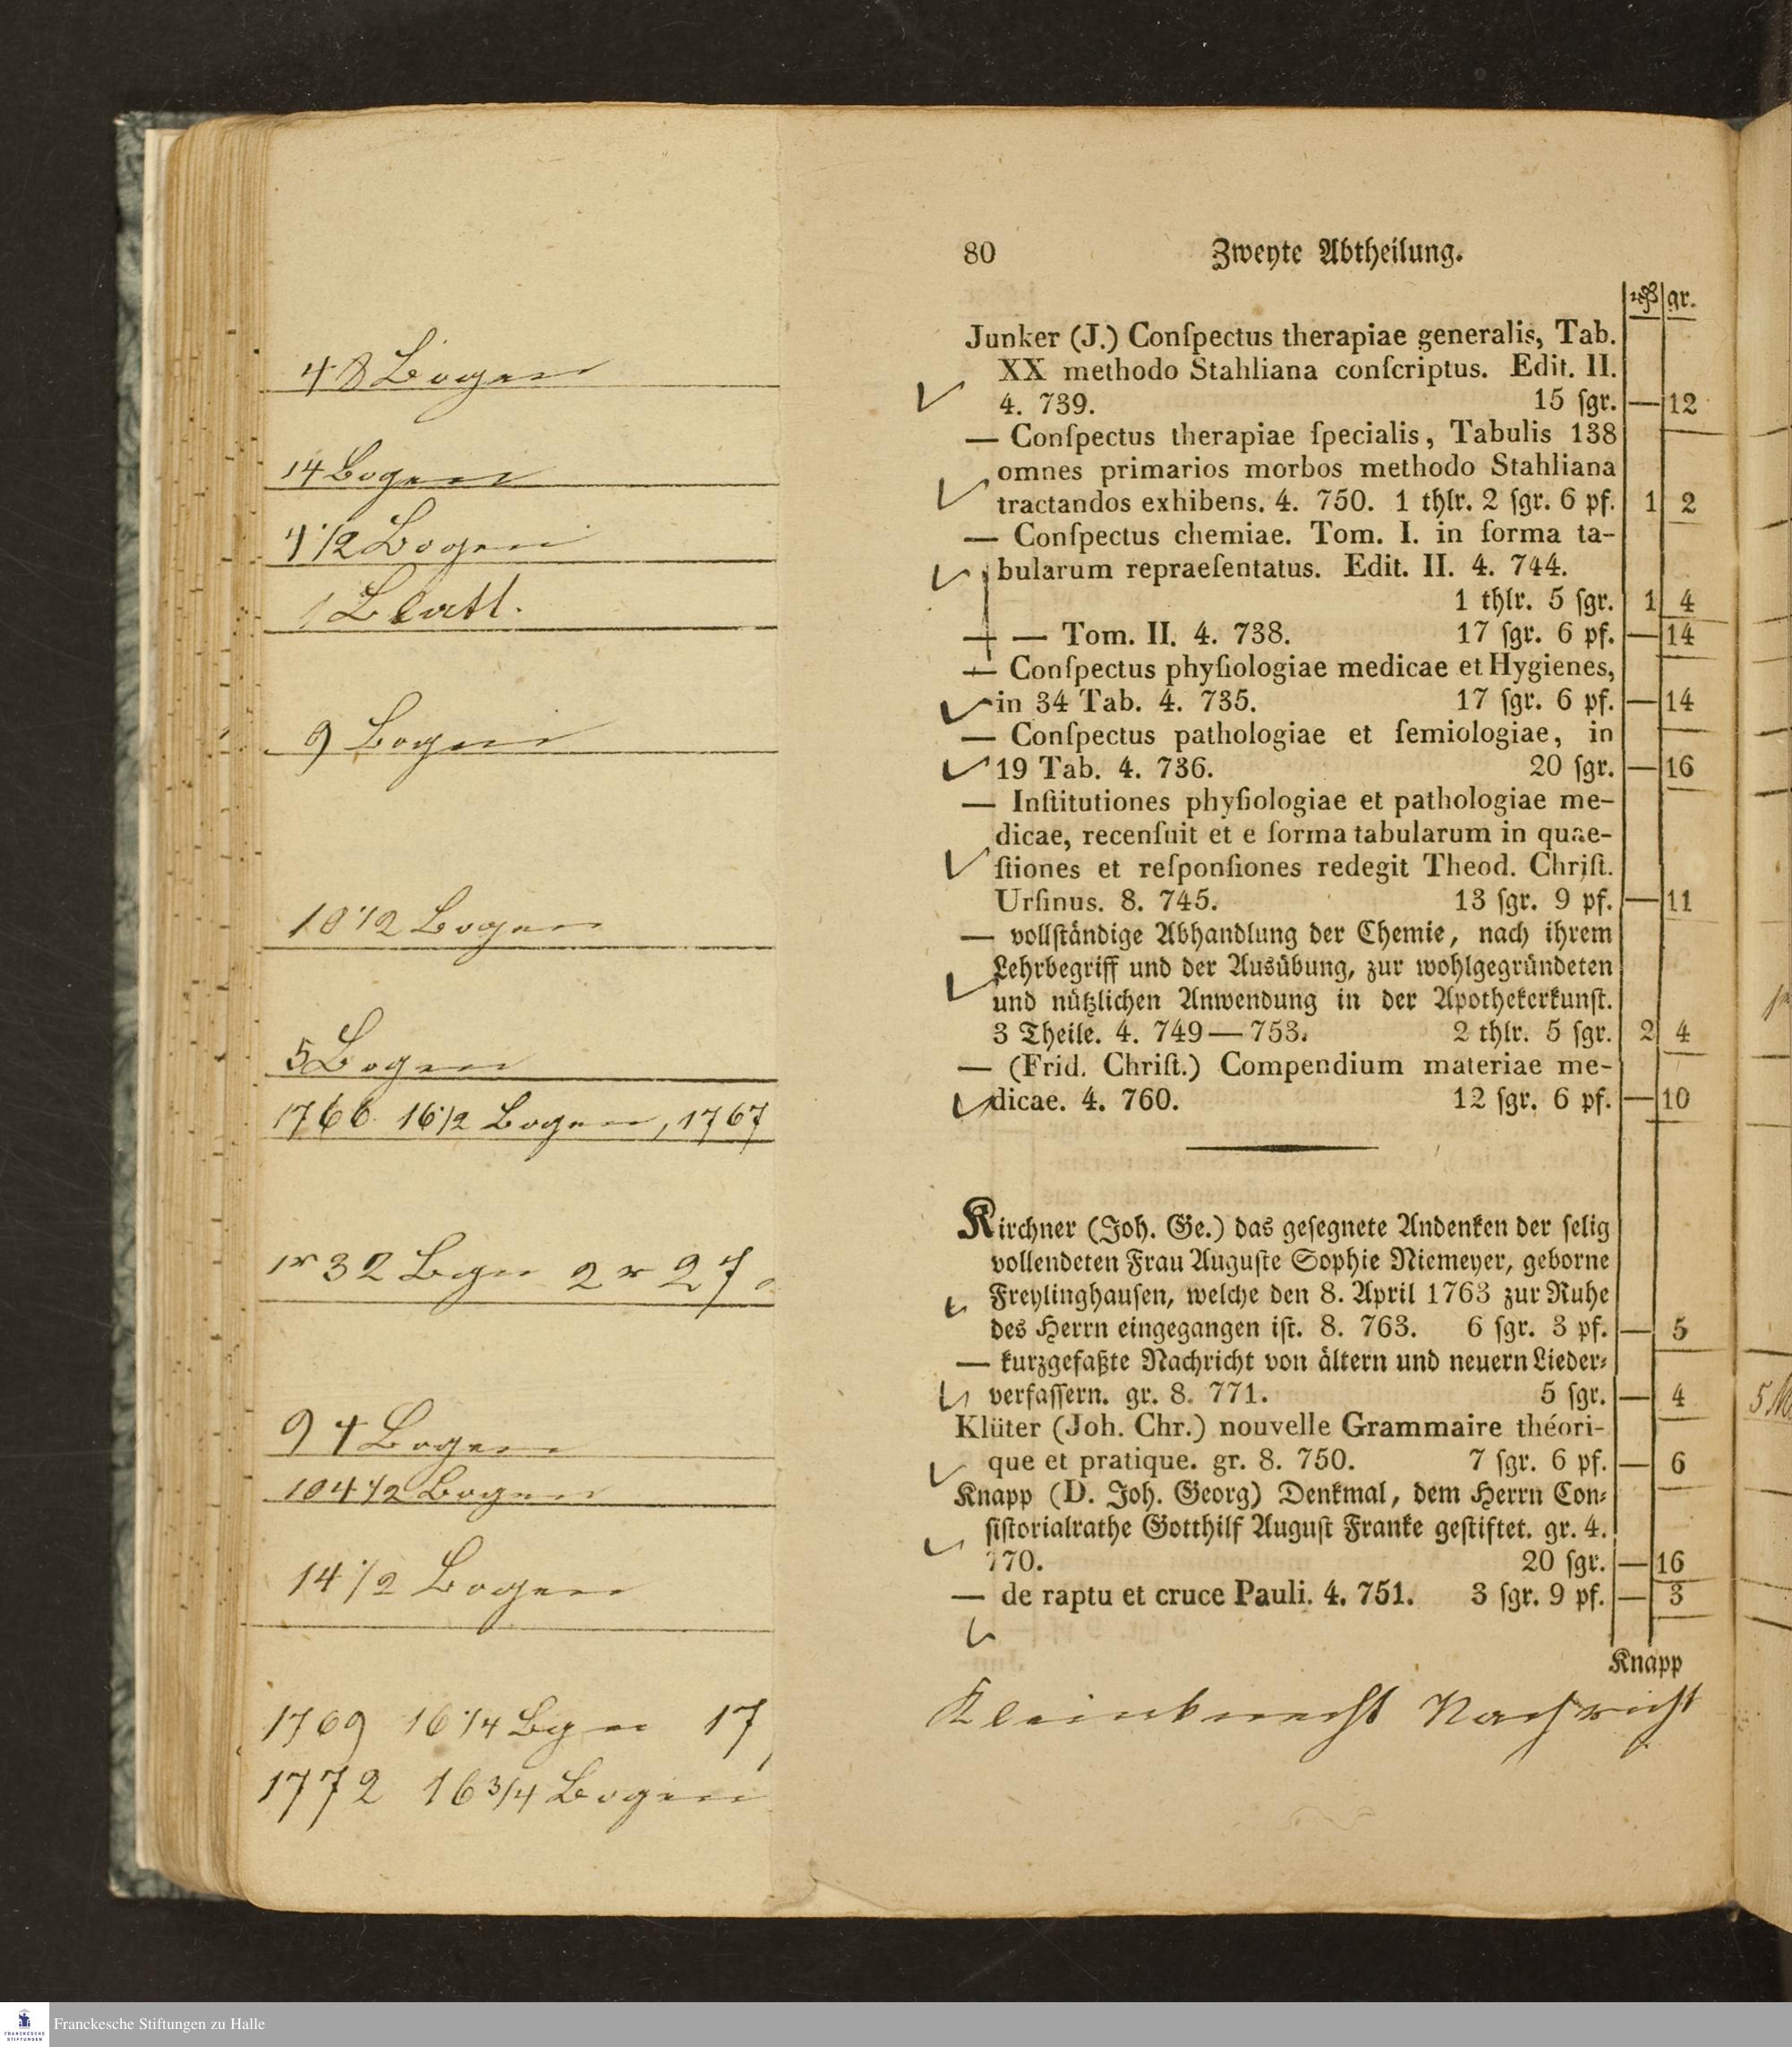 48 Bogen
14 Bogen
1/2 Bogen
1 Blatt.
9 Bogen
10 1/2 Bogen
5 Bogen
1766 16 1/2 Bogen, 1767
1r 32 Bgn 2r 27
94 Bogen
104 1/2 Bogen
14 1/2 Bogen
1769 16 1/4 Bgn 17
1772 16 3/4 Bogen
80 Zweyte Abtheilung.
gr.
Junker (J.) Conſpectus therapiae generalis, Tab.
XX methodo Stahliana conſcriptus. Edit. II.
4. 739. 15 ſgr. — 12
— Conſpectus therapiae ſpecialis, Tabulis 138
omnes primarios morbos methodo Stahliana
tractandos exhibens. 4. 750. 1 thlr. 2 ſgr. 6 pf. 1 2
— Conſpectus chemiae. Tom. I. in forma ta-
bularum repraeſentatus. Edit. II. 4. 744.
1 thlr. 5 ſgr. 1 4
— — Tom. II. 4. 738. 17 ſgr. 6 pf. — 14
— Conſpectus phyſiologiae medicae et Hygienes,
in 34 Tab. 4. 735. 17 ſgr. 6 pf. — 14
— Conſpectus pathologiae et ſemiologiae, in
19 Tab. 4. 736. 20 ſgr. — 16
— Inſtitutiones phyſiologiae et pathologiae me-
dicae, recenſuit et e forma tabularum in quae-
ſtiones et reſponſiones redegit Theod. Chriſt.
Urſinus. 8. 745. 13 ſgr. 9 pf. — 11
— vollſtändige Abhandlung der Chemie, nach ihrem
Lehrbegriff und der Ausübung, zur wohlgegründeten
und nützlichen Anwendung in der Apothekerkunſt.
3 Theile. 4. 749—753. 2 thlr. 5 ſgr. 2 4
— (Frid. Chriſt.) Compendium materiae me-
dicae. 4. 760. 12 ſgr. 6 pf. — 10
Kirchner (Joh. Ge.) das geſegnete Andenken der ſelig
vollendeten Frau Auguſte Sophie Niemeyer, geborne
Freylinghauſen, welche den 8. April 1763 zur Ruhe
des Herrn eingegangen iſt. 8. 763. 6 ſgr. 3 pf. — 5
— kurzgefaßte Nachricht von ältern und neuern Lieder-
verfaſſern. gr. 8. 771. 5 ſgr. — 4
Klüter (Joh. Chr.) nouvelle Grammaire théori-
que et pratique. gr. 8. 750. 7 ſgr. 6 pf. — 6
Knapp (D. Joh. Georg) Denkmal, dem Herrn Con-
ſiſtorialrathe Gotthilf Auguſt Franke geſtiftet. gr. 4.
770. 20 ſgr. — 16
— de raptu et cruce Pauli. 4. 751. 3 ſgr. 9 pf. — 3
Knapp
Kleinknecht Nachricht
Franckesche Stiftungen zu Halle